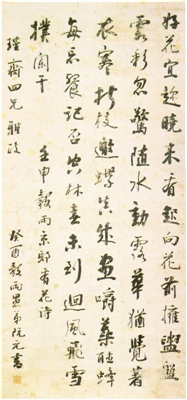 好花宜趁曉來看起向花前擁盥盤
雲彩忽驚隨水動露華猶覺著
衣寒折枝邀蝶真成畫嚼蕊酣蜂
每忘餐記否空林春未到迴風飛雪
撲闌干
壬申穀雨京邸看花詩
瑾齋四兄雅政
癸酉穀雨愚弟阮元書